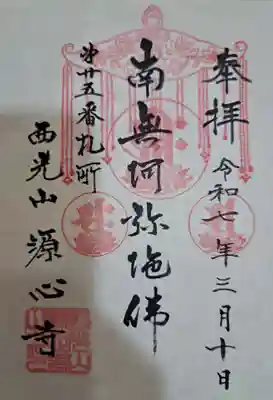 奉拝
令和七年三月十日
南無阿弥陀佛
第廿五番札所
西光山 源心寺